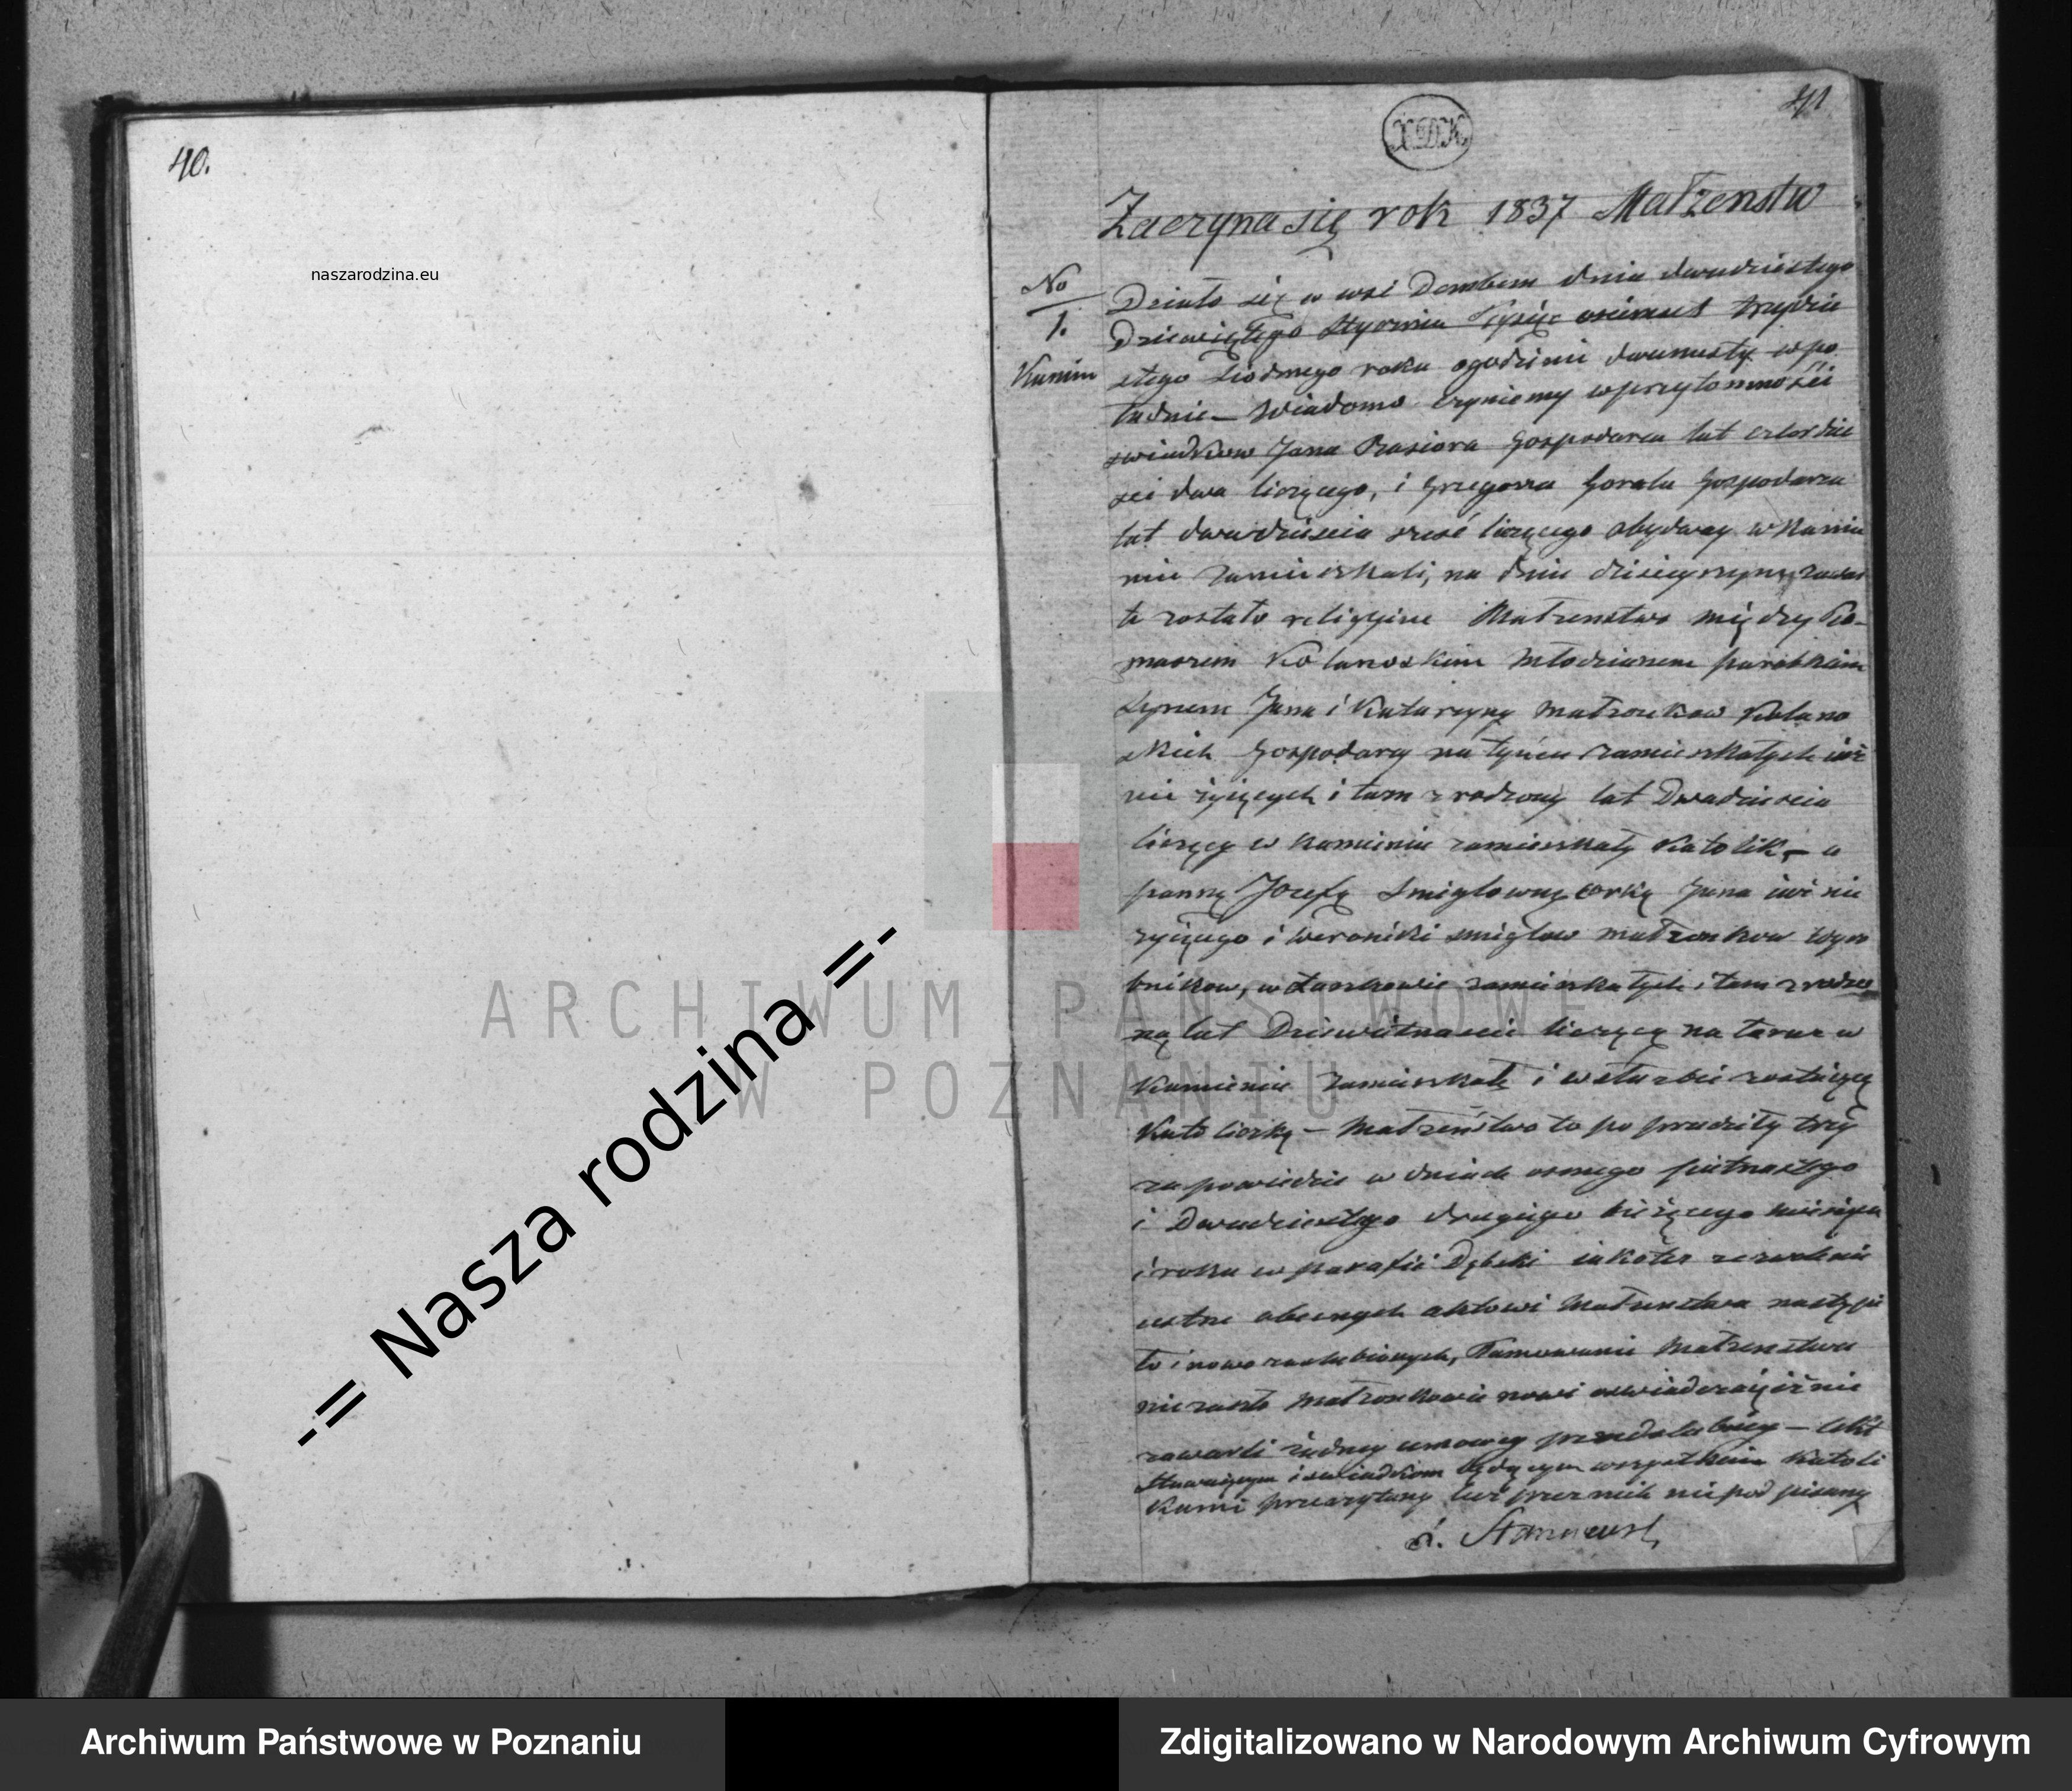 40.
naszarodzina.eu
-= Nasza rodzina =-
ARCHIWUM PAŃSTWOWE
W POZNANIU
41
XDK
Zaczyna się rok 1837 Małżenstw
No
1.
Działo się w wsi Dembem dnia dwudziestego
Dziewiętego Stycznia Tysiąc osimset trzydzie
stego Siodmego roku ogodzinie dwunasty wpo
łudnie — Wiadomo czyniemy wprzytomności
swiadkow Jana Gospodarza lat czterdzie
sci dwa liczącego, i Grzegorza Gorala Gospodarza
lat dwadziescia szesć liczącego obydway w Kamie
nie zamieszkali, na dniu dzisieyszym zawar
te zostało religijne Małzenstwo między To-
maszem Kolanoskim Młodzianem parobkiem
Synem Jana i Katarzyny małzonkow Kolano
skich Gospodarzy na zamieszkałych iuż
nie żyiących i tam zrodzony lat Dwadziescia
liczący w Kamieniu zamieszkały Katolik, — a
panną Jozefą Smiglowną corką Jana iuż nie
zyiącego i Weroniki smiglow małzonkow wyro
bnikow, w zamieszkałych i tam zrodzo
ną lat Dziewietnascie liczącą na teraz w
Kamieniu zamieszkałą i wsłuzbie zostaiącą
Katoliczką — Małzeństwo to poprzedziły trzy
zapowiedzie w dniach osmego pietnastego
i Dwudziestego drugiego bieżącego miesiąca
i roku w parafii Dębski iakotez zezwolenie
ustne obecnych aktowi Małzenstwa
to i nowozaslubionych, Tamowanie Małzenstwa
nie zaszło Małzonkowie nowi oswiadczaią iż nie
zawarli żadney umowy przedslubney — Akt
Stawaiącym i swiadkom będącym wszystkim Katoli
kami przeczytany lecz przez nich niepodpisany
Archiwum Państwowe w Poznaniu
Zdigitalizowano w Narodowym Archiwum Cyfrowym